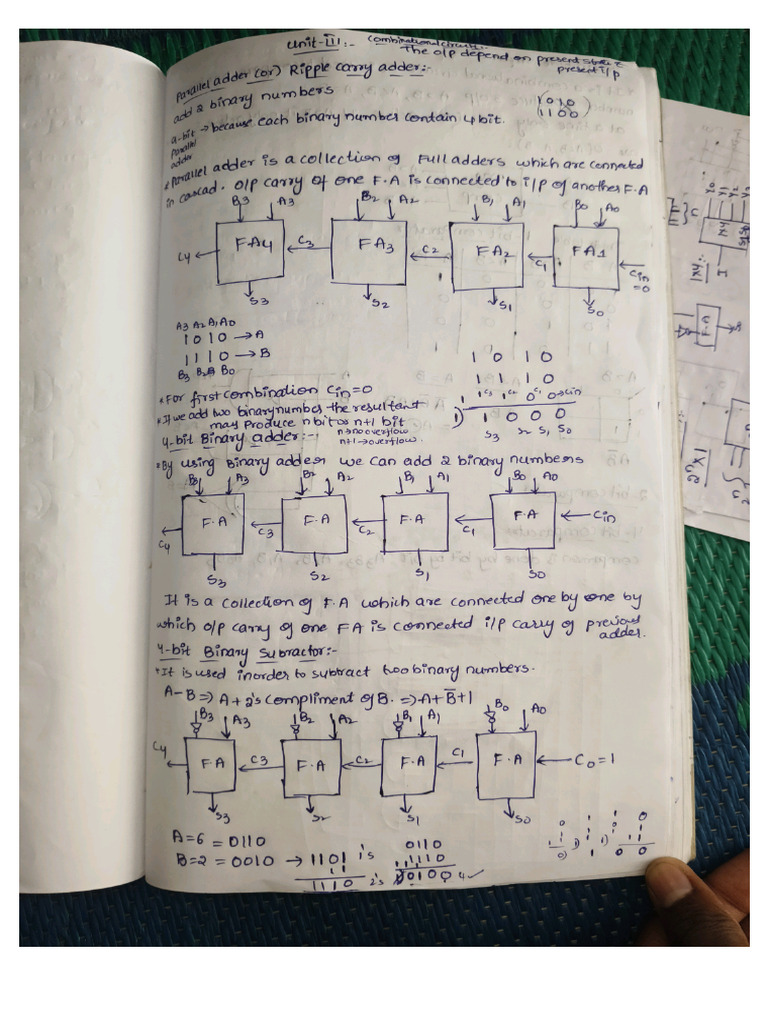 Unit-III:- Combinational circuits:-
The o/p depend on present state &
present i/p
Parallel adder (or) Ripple carry adder:-
add 2 binary numbers
(1010
1100)
4-bit → because each binary number contain 4 bit.
parallel
adder
* Parallel adder is a collection of Full adders which are connected
in cascad. o/p carry of one F.A is connected to i/p of another F.A
B3 A3 B2 A2 B1 A1 B0 A0
C4 FA4 C3 FA3 C2 FA2 C1 FA1 Cin =0
S3 S2 S1 S0
A3 A2 A1 A0
1 0 1 0 → A
1 1 1 0 → B
B3 B2 B1 B0
1 0 1 0
1 1 1 0
1 1 C3 1 C2 0 C1 0 → Cin
1) 1 0 0 0
S3 S2 S1 S0
* For first combination Cin=0
* If we add two binary number the resultant
may produce n bit or n+1 bit
n → no overflow
n+1 → overflow.
4-bit Binary adder:-
* By using Binary adder we can add 2 binary numbers
B3 A3 B2 A2 B1 A1 B0 A0
C4 F.A C3 F.A C2 F.A C1 F.A Cin
S3 S2 S1 S0
It is a collection of F.A which are connected one by one by
which o/p carry of one FA is connected i/p carry of previous
adder.
4-bit Binary Subractor:-
* It is used inorder to subtract two binary numbers.
A-B => A+2's compliment of B. => A+B̅+1
B3 A3 B2 A2 B1 A1 B0 A0
C4 F.A C3 F.A C2 F.A C1 F.A C0=1
S3 S2 S1 S0
A=6 = 0110
B=2 = 0010 → 1101 1's
1 1
1110 2's
0110
1110
1)0100 4 ✓